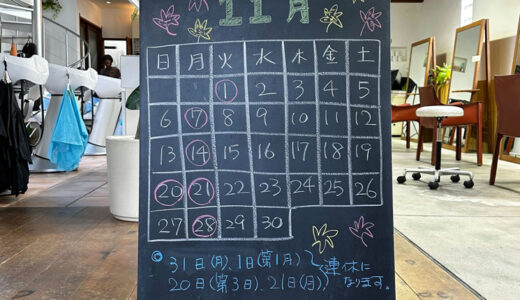 11月
日 月 火 水 木 金 土
1 2 3 4 5
6 7 8 9 10 11 12
13 14 15 16 17 18 19
20 21 22 23 24 25 26
27 28 29 30
31日(月)、1日(第1月)
20日(第3日)、21日(月)、
連休に
なります。